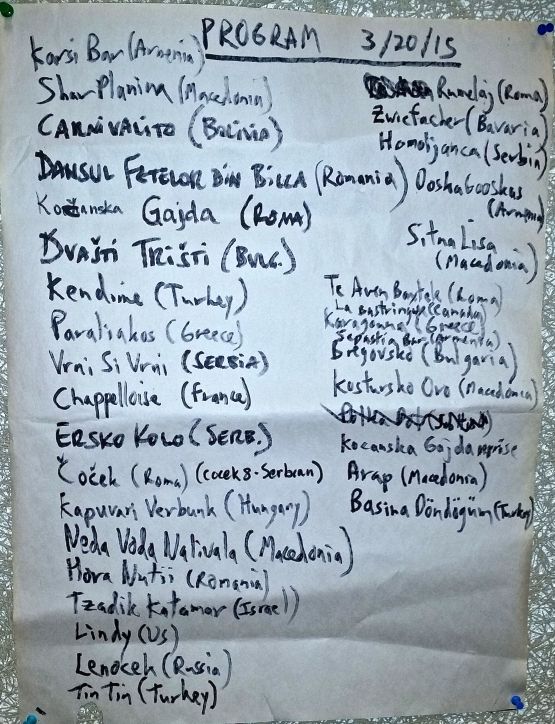 PROGRAM 3/20/15
Karsi Bar (Armenia)
Shar Planina (Macedonia)
CARNIVALITO (BOLIVIA)
DANSUL FETELOR DIN BILCA (Romania)
Kočanska Gajda (ROMA)
DVAŠTI TRIŠTI (BULG.)
Kendime (Turkey)
Paraliakos (Greece)
Vrni Si Vrni (SERBIA)
Chappelloise (France)
ERSKO KOLO (SERB.)
Čoček (Roma) (cocek 8-Serbian)
Kapuvari Verbunk (Hungary)
Neda Voda Nalivala (Macedonia)
Hora Nutii (Romania)
Tzadik Katamar (Israel)
Lindy (US)
Lenocek (Russia)
Tin Tin (Turkey)
Rumelaj (Roma)
Zwiefacher (Bavaria)
Homoljanca (Serbia)
Oosha Gooshas
(Armenia)
Sitna Lisa
(Macedonia)
Te Aven Baxtale (Roma)
La Bastringue (Canada)
Karagouna (Greece)
Sepastia Bar (Armenia)
Bregovsko (Bulgaria)
Kostursko Oro (Macedonia)
Kocanska Gajda reprise
Arap (Macedonia)
Basina Döndögüm (Turkey)